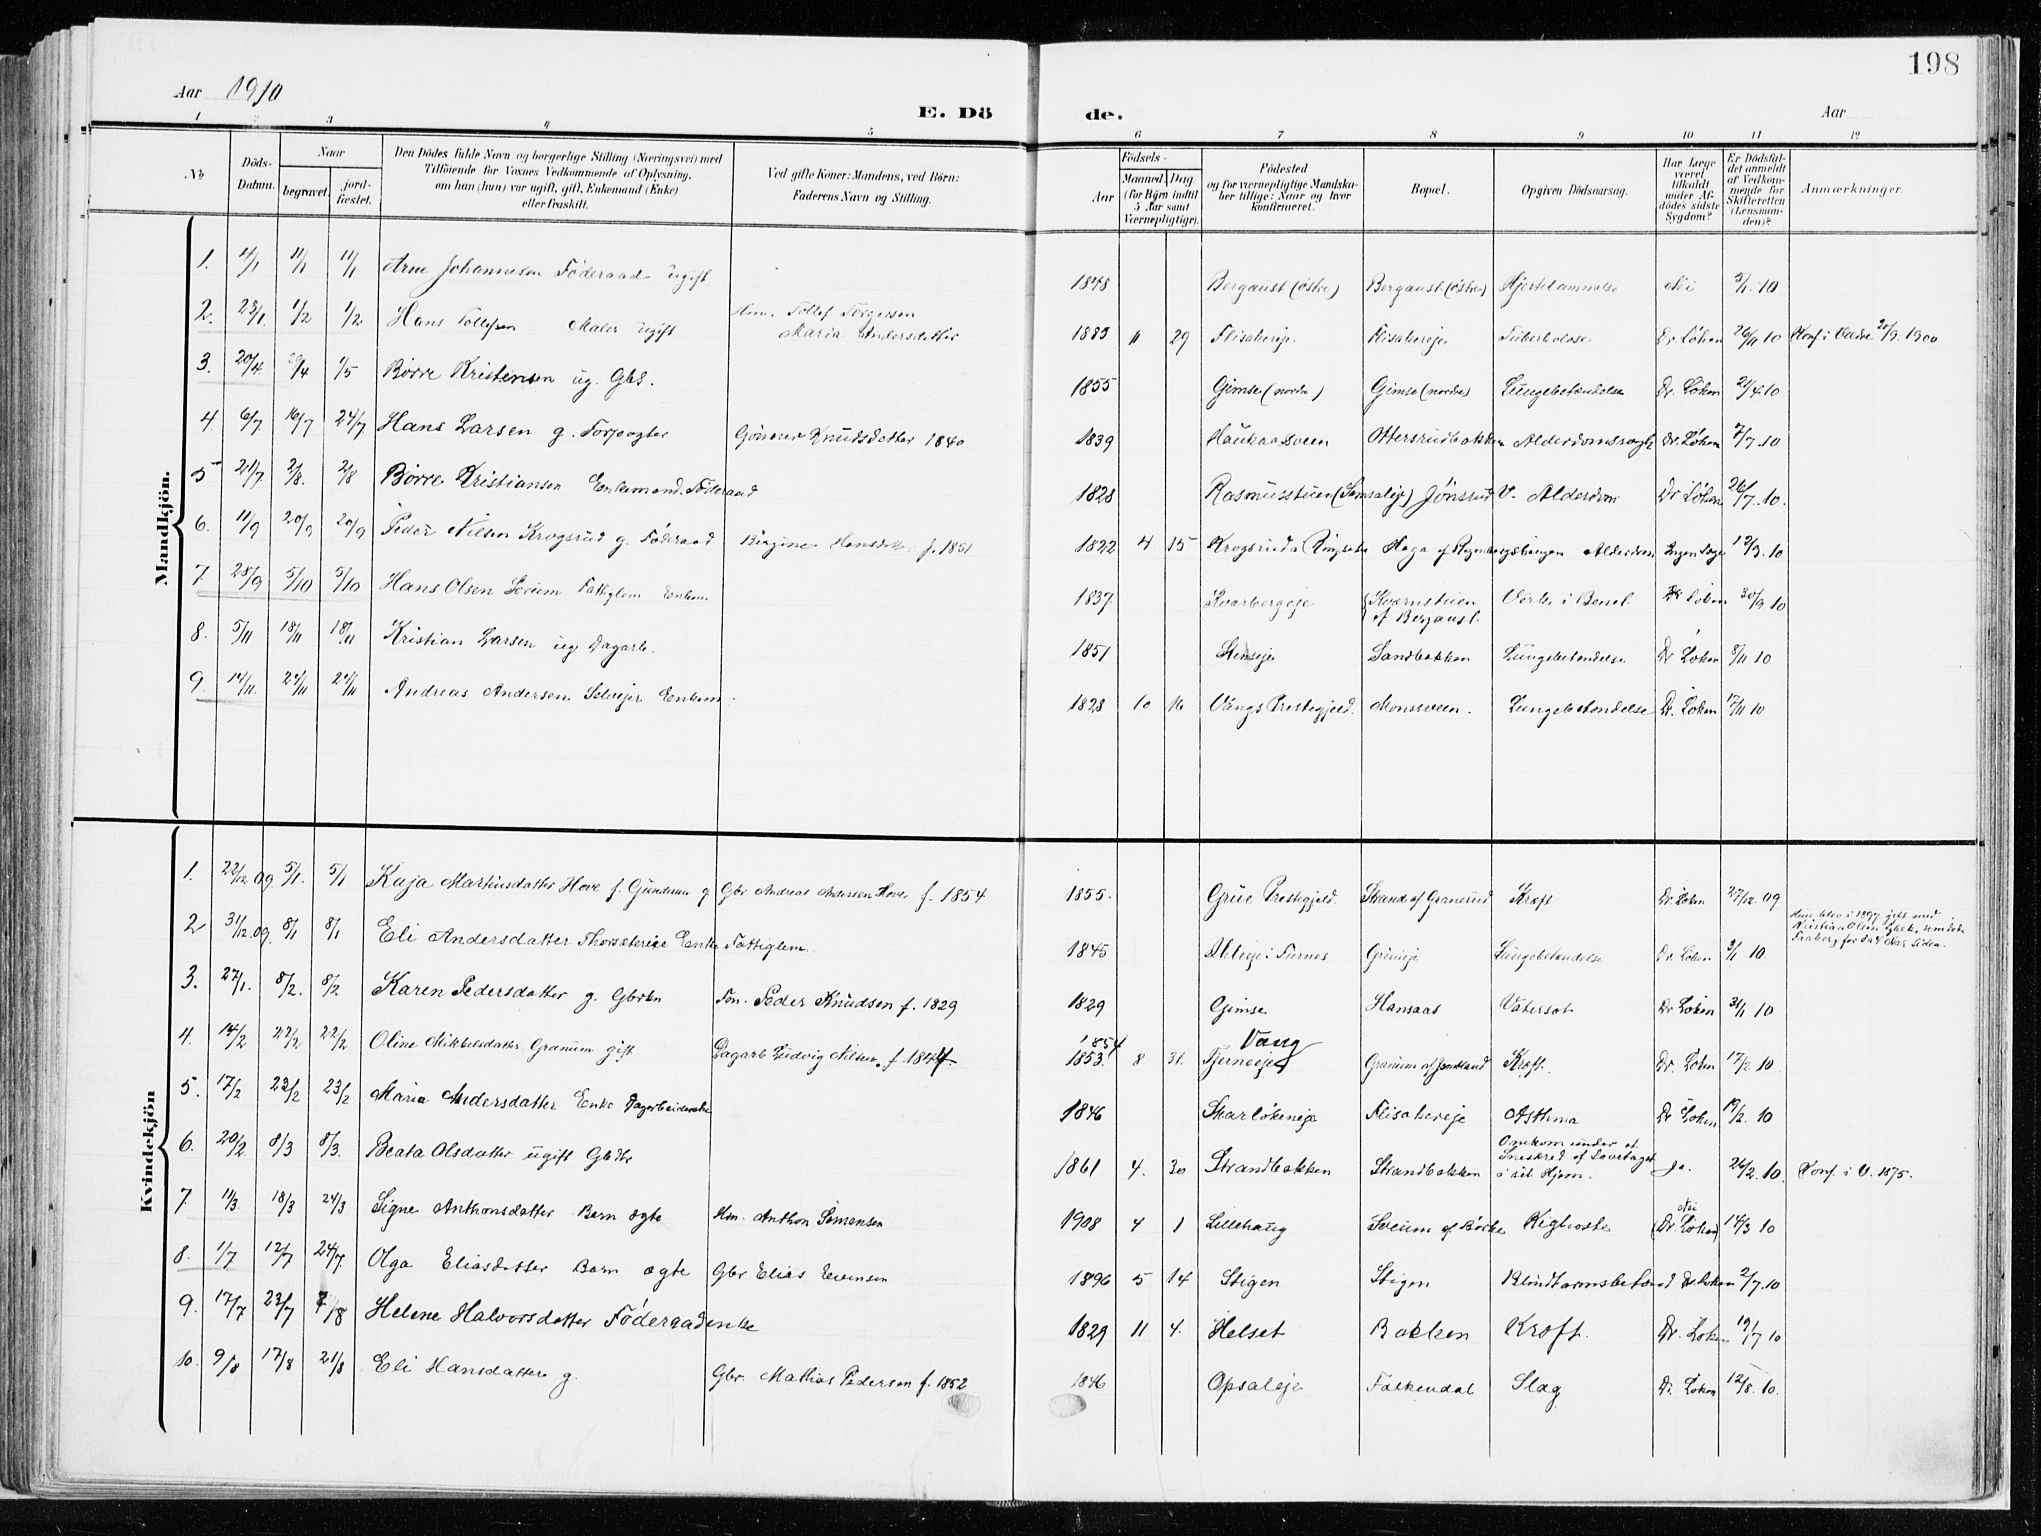 198
Aar 1910
E. Dö de.
Aar
1 2 3 4 5 6 7 8 9 10 11 12
No
Döds-Datum.
Naar
begravet.
jord-fæstet.
Den Dödes fulde Navn og borgerlige Stilling (Næringsvei) med
Tilföiende for Voxnes Vedkommende af Oplysning,
om han (hun) var ugift, gift, Enkemand (Enke)
eller fraskilt.
Ved gifte Koner: Mandens, ved Börn:
Faderens Navn og Stilling.
Födsels-
Aar
Maaned. Dag.
(for Börn indtil
5 Aar samt
Værnepligtige).
Födested
og for værnepligtige Mandska-
ber tillige: Naar og hvor
konfirmeret.
Bopæl.
Opgiven Dödsaarsag.
Har Læge
været
tilkaldt
under Af-
dödes sidste
Sygdom?
Er Dödsfal-
det anmeldt
af Vedkom-
mende for
Skifteretten
(Lensman-
den)?
Anmærkninger.
Mandkjön.
1. 4/1 11/1 11/1 Arne Johannesen Föderaad ugift 1848 Bergaust (östre) Bergaust (östre) Hjertelammelse Nei 5/1 10
2. 23/1 1/2 1/2 Hans Tollefsen Maler ugift Hm. Tollef Torgersen
Maria Andersdatter 1885 11 29 Flisakereje Flisakereje Tuberkulose Dr Löken 26/1 10 Konf. i Vardal 30/9 1900
3. 20/4 29/4 1/5 Börre Kristensen ug. Gbs. 1855 Gimse (nordre) Gimse (nordre) Lungebetændelse Dr. Löken 21/4 10
4. 6/7 16/7 24/7 Hans Larsen g. Forpagter Gönner Knudsdatter 1840 1839 Haukaasveen Ottersrudbakken Alderdomssvagh Dr. Löken 7/7 10
5 21/7 2/8. 2/8 Börre Kristiansen Enkemand. Föderaad 1828 Rasmusstuen (Samsaleje) Jönsrud V. Alderdom Dr Löken 26/7. 10.
6. 11/9 20/9 20/9 Peder Nilsen Krogsrud g. Föderaad Birgine Hansdatter f. 1851 1822 4 15 Krogsrud a Ringsaker Haga af Alderdom Ingen Læge 12/9 10
7 28/9 5/10 5/10 Hans Olsen Sveum Fattiglem Enkem. 1837. Kvarbergeje Kværnstuen
af Bergaust. Værk i Benet Dr Löken 30/9 10
8. 5/11 18/11 18/11 Kristian Larsen ug Dagarb. 1851 Stenseje Sandbakken Lungebetændelse Dr Löken 8/11 10
9. 14/11. 24/11 24/11 Andreas Andersen Selvejer Enkem. 1828 10 16 Vangs Prestegjeld. Monsveen. Lungebetændelse Dr. Löken 17/11 10
Kvindekjön
1. 22/12 09 5/1. 5/1 Kaja Martinusdatter Hove f. Gunderun g Gbr Andreas Andersen Hove f. 1854 1855. Grue Prestegjeld. Strand af Granerud Kræft Dr. Löken 27/12 09
2 31/12 09. 8/1 8/1 Eli Andersdatter Thorsætereje Enke Fattiglem. 1845 i Furnes Grimeje Lungebetændelse Dr. Löken 3/1 10. Hun blev i 1897 gift med
Kristian Olsen som døde
Faaberg for 3 a 4 Aar siden.
3. 27/1. 8/2. 8/2 Karen Pedersdatter g. Gbrkn Fon. Peder Knudsen f. 1829 1829 Gimse Hansaas Vatersot Dr Löken 31/1 10
4. 14/2 22/2 22/2 Oline Mikkelsdatter Granum gift Dagarb Ludvig Nilsen. f 1844. 1854
1853. 8 31. Vang
Tjerneeje Granum af Kræft. Dr. Löken 17/2 10.
5. 17/2 23/2 23/2 Maria Andersdatter Enke Dagarbeiderske 1846 Skarlökeneje Flisakereje Asthma Dr Löken 19/2. 10
6. 20/2. 8/3 8/3. Beata Olsdatter ugift Gbdtr 1861 4. 30 Strandbakken Strandbakken Omkom under et
Sneskred af Lovetaget
i sit Hjem. Ja. 26/2. 10. Konf. i V. 1875.
7 11/3. 18/3 24/3 Signe Anthonsdatter Barn ægte Hm. Anthon Simensen 1908 4 1 Lillehaug Sveum af Börke Kighoste Nei
(Dr. Löken) 14/3 10
8. 1/7 12/7 24/7. Olga Eliasdatter Barn ægte Gbr Elias Evensen 1896 5 14 Stigen Stigen Blindtarmsbetænd Dr. Löken 2/7. 10
9. 17/7 23/7 7/8 Helene Halvorsdatter Föderaadenke 1829 11 4. Helset Bakken Kræft. Dr. Löken 19/7 10
10. 9/8 17/8 21/8 Eli Hansdatter g. Gbr. Mathias Pedersen f. 1852 1846 Opsaleje Falkendal Slag Dr. Löken 12/8. 10.